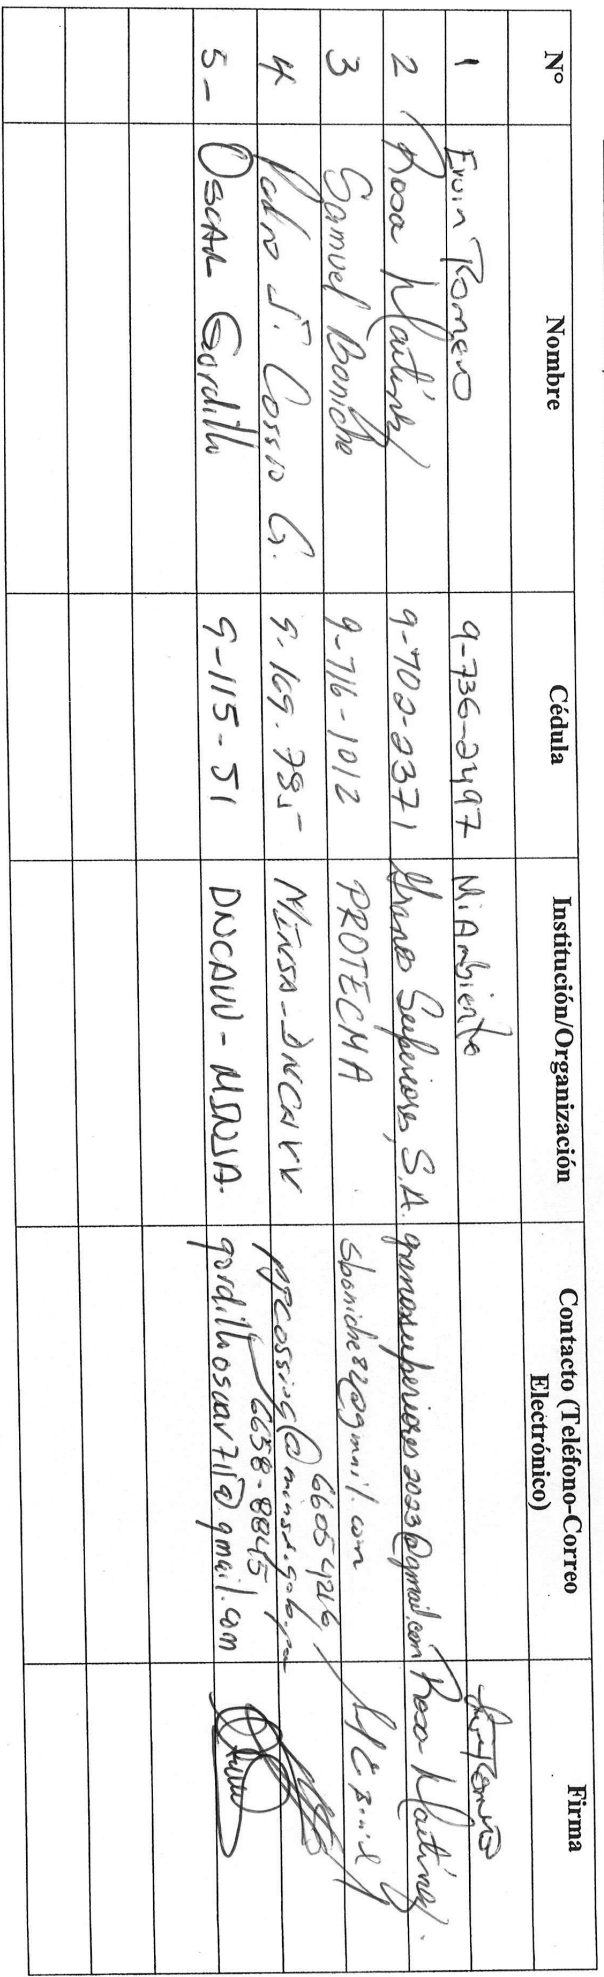 N° Nombre Cédula Institución/Organización Contacto (Teléfono-Correo Electrónico) Firma
1 Ervin Romero 9-736-2497 MiAmbiente
2 Rosa Martínez 9-702-2371 Granos Superiores, S.A. granossuperiores2023@gmail.com Rosa Martínez.
3 Samuel Boniche 9-716-1012 PROTECMA sboniche82@gmail.com
4 Pedro J. Cossio G. 9-169-785 MINSA-DNCAVV 66054216
5- OSCAR Gordillo 9-115-51 DNCAVV-MINSA. 6638-8845 gordillooscar711@gmail.com